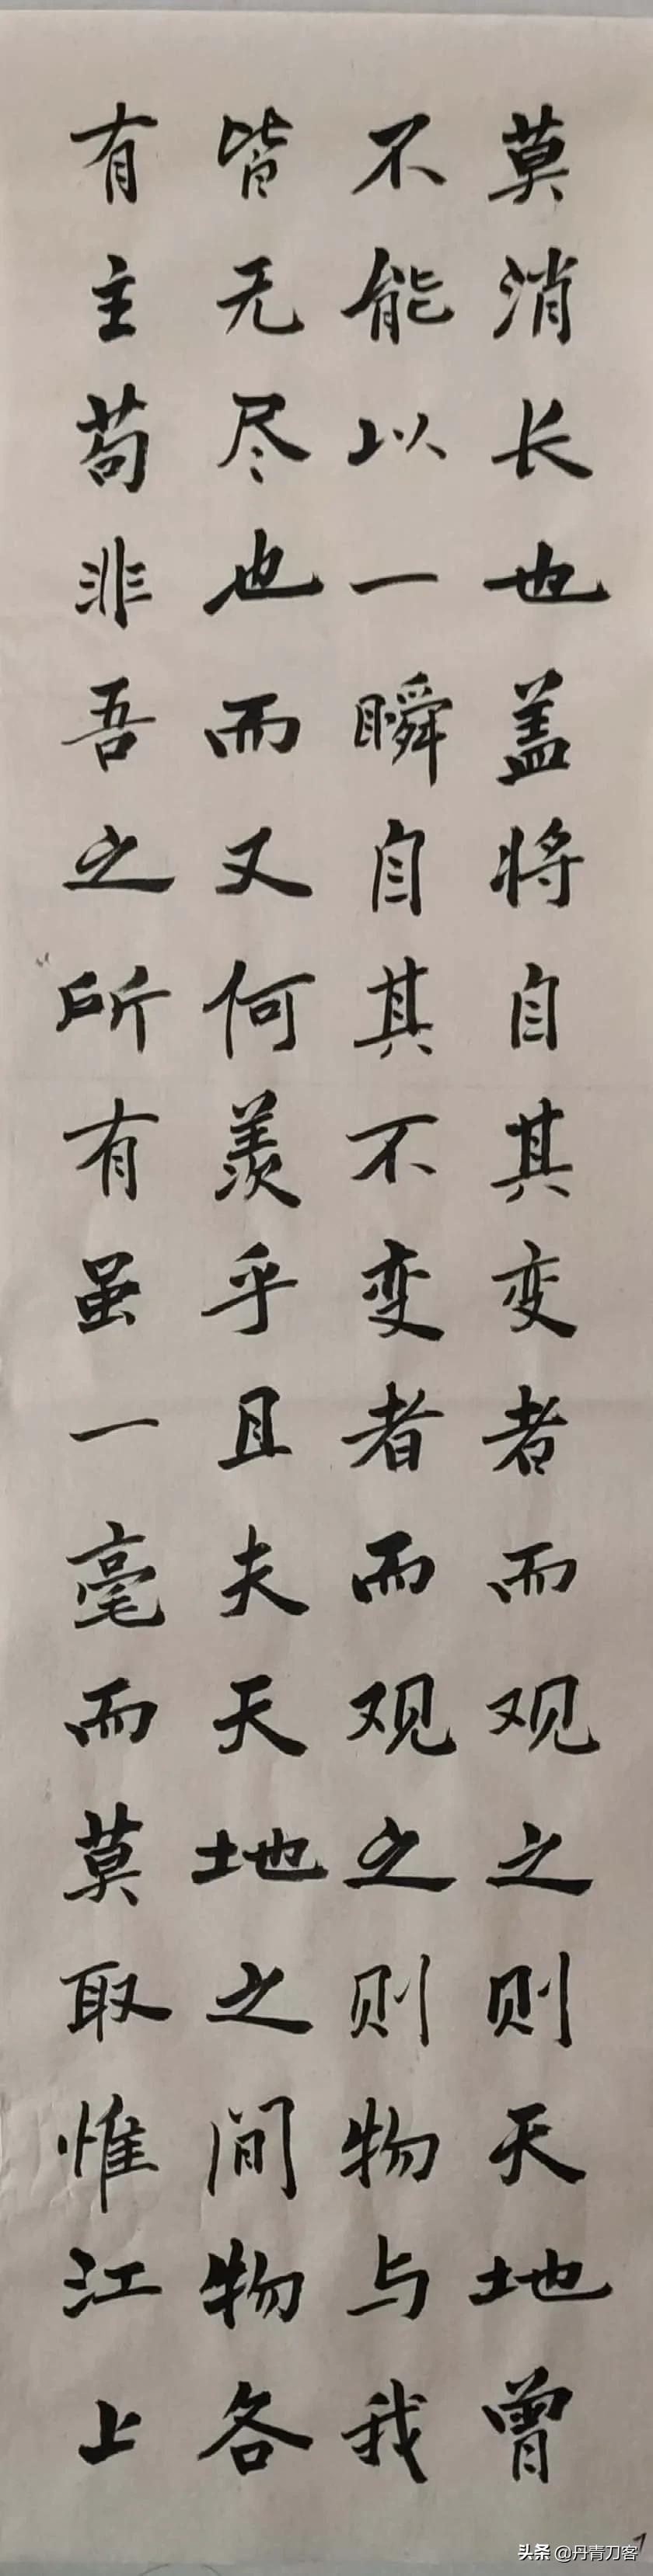 莫消长也盖将自其变者而观之则天地曾
不能以一瞬自其不变者而观之则物与我
皆无尽也而又何羡乎且夫天地之间物各
有主苟非吾之所有虽一毫而莫取惟江上
7
头条 @丹青刀客